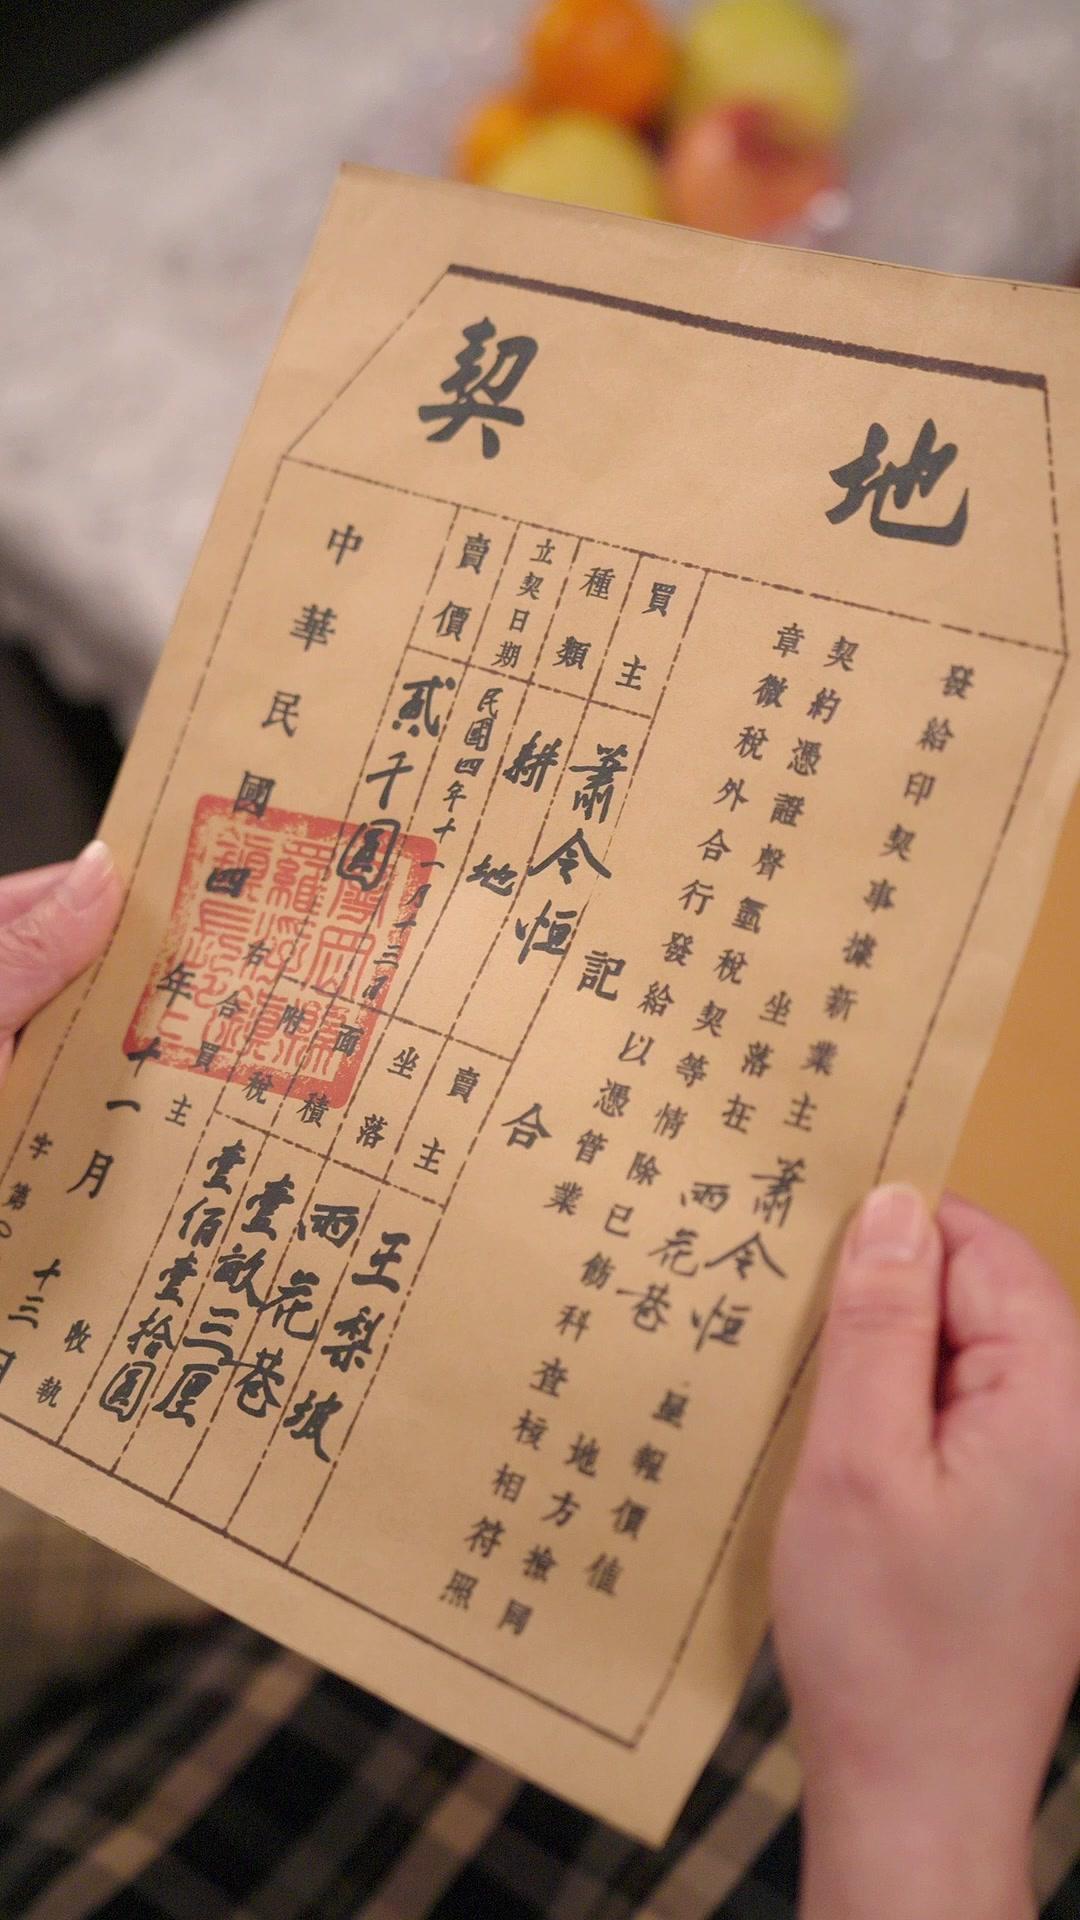 地契
發給印契事據新業主蕭令恒呈報價值
坐落在雨花巷地方撿同
契約憑證聲氫稅契等情除已飭科查核相符照
章徵稅外合行發給以憑管業
記合
買主 蕭令恒
賣主 王梨坡
種類 耕地
坐落 雨花巷
立契日期 民國四年十一月十三日
面積 壹畝三厘
賣價 貳千圓
附稅 壹佰壹拾圓
右合買主收執
中華民國四年十一月十三日
字第